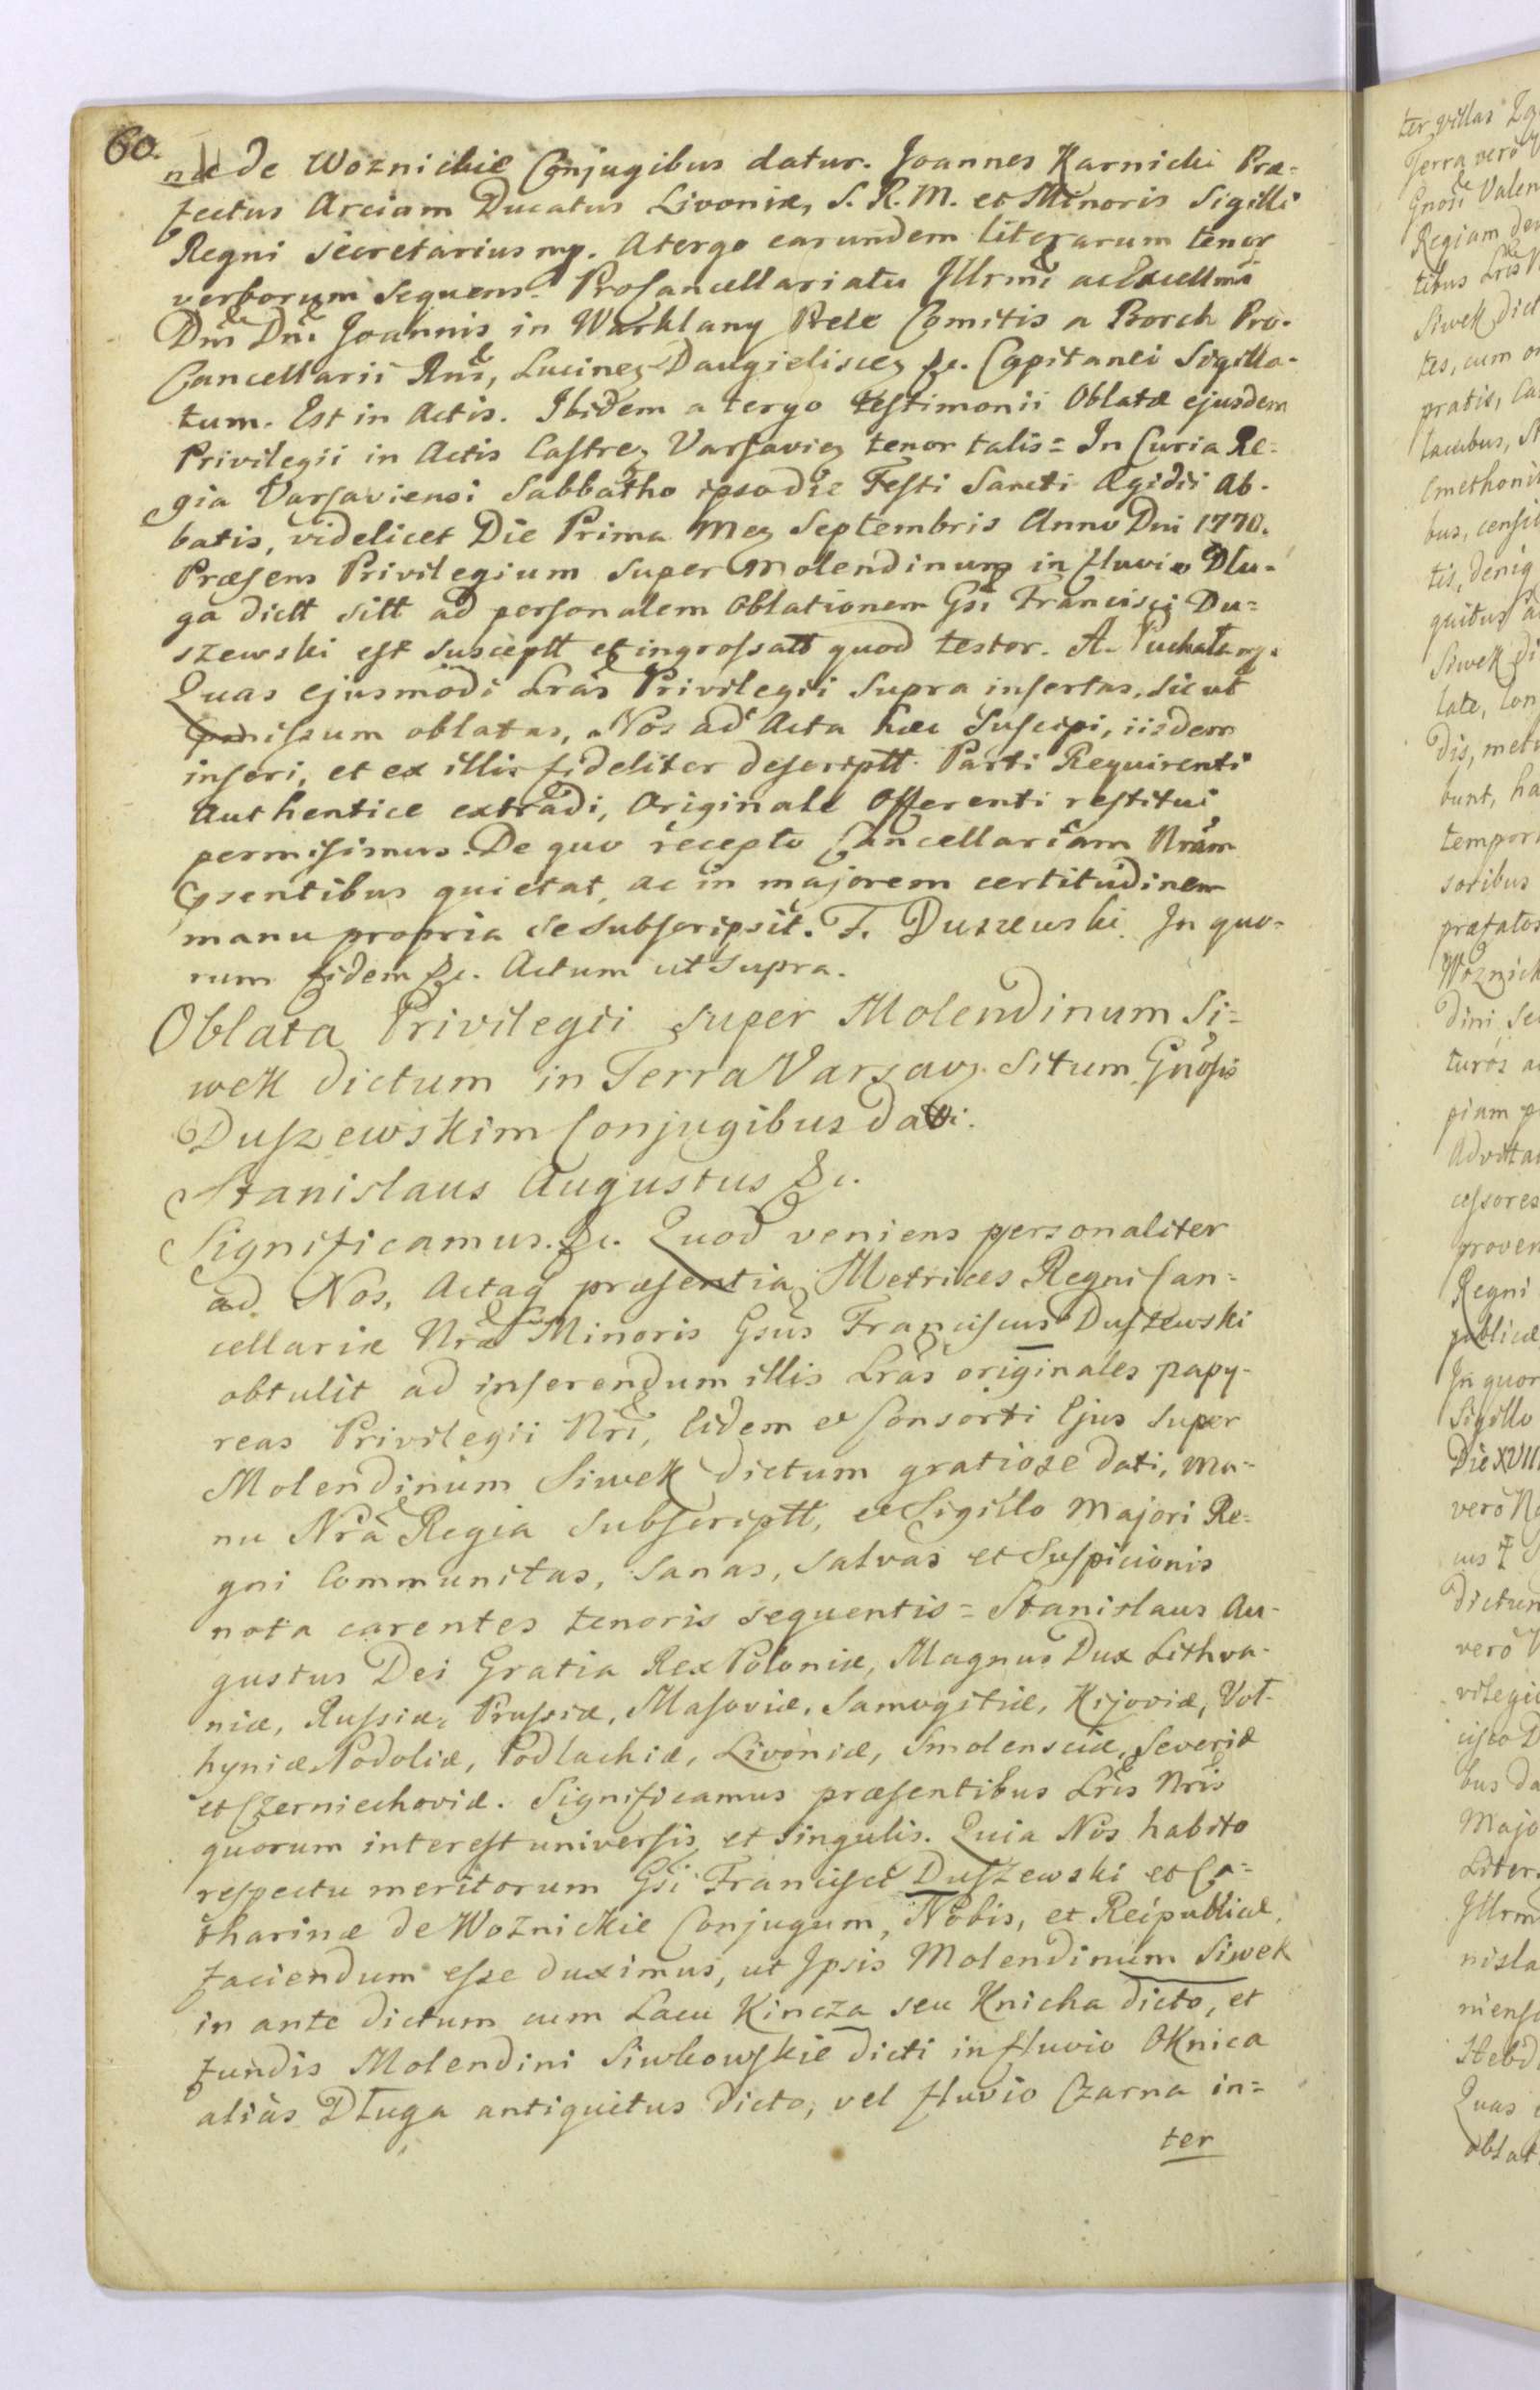 60.
næ de Woznickie Conjugibus datur. Joannes Karnicki Præ-
fectus Arcium Ducatus Livoniæ, S. R. M. et Minoris Sigilli
Regni Secretarius mp. A tergo earundem literarum tenor
verborum sequens = Procancellariatu Illrmi ac Excellmi
Dni Dni Joannis in Warklany Prele Comitis a Borch Pro-
Cancellarii Rni, Lucinez Daugieliscez &c. Capitanei Sigilla-
tum. Est in Actis. Ibidem a tergo testimonii Oblatæ ejusdem
Privilegii in Actis Castrez Varsaviez tenor talis = In Curia Re-
gia Varsaviensi Sabbatho ipso die Festi Sancti Ægidii Ab-
batis, videlicet Die Prima Mez Septembris Anno Dni 1770.
Præsens Privilegium super Molendinum in fluvio Dlu-
ga dictt sitt ad personalem Oblationem Gsi Francisci Du-
szewski est susceptt et ingrossatt quod testor. A. Puchała mp.
Quas ejusmodi Lras Privilegii supra insertas, sicut
præmissum oblatas, Nos ad Acta hæc suscipi, iisdem
inseri, et ex illis fideliter descriptt Parti Requirenti
Authentice extradi, Originale Offerenti restitui
permisimus. De quo recepto Cancellariam Nram
Præsentibus quietat, ac in majorem certitudinem
manu propria se subscripsit. F. Duszewski. In quo-
rum fidem &c. Actum ut supra.
Oblata Privilegii super Molendinum Si-
wek dictum in Terra Varsavz. Situm Gnosis
Duszewskim Conjugibus dati.
Stanislaus Augustus &c.
Significamus. &c. Quod veniens personaliter
ad Nos, Actaq præsentia Metrices Regni Can-
cellariæ Nræ Minoris Gsus Franciscus Duszewski
obtulit ad inserendum illis Lras originales papy-
reas Privilegii Nri, Eidem et Consorti Ejus super
Molendinum Siwek dictum gratiose dati, ma-
nu Nra Regia subscriptt, et Sigillo Majori Re-
gni Communitas, sanas, salvas et suspicionis
nota carentes tenoris sequentis = Stanislaus Au-
gustus Dei Gratia Rex Poloniæ, Magnus Dux Lithva-
niæ, Russiæ, Prussiæ, Masoviæ, Samogitiæ, Kijoviæ, Vol-
hyniæ, Podoliæ, Podlachiæ, Livoniæ, Smolensciæ, Severiæ
et Czerniechoviæ. Significamus præsentibus Lris Nris
quorum interest universis et singulis. Quia Nos habito
respectu meritorum Gsi Francisci Duszewski et Ca-
tharinæ de Woznickie Conjugum, Nobis, et Reipublicæ,
faciendum esse duximus, ut Ipsis Molendinum Siwek
in ante dictum cum Lacu Kincza seu Knicha dicto, et
fundis Molendini Siwkowskie dicti in fluvio Oknica
alias Długa antiquitus dicto, vel fluvio Czarna in-
ter
ter villas
Terra vero
Regiam
Siwek
tes, cum
pratis,
lacubus,
bus,
tis,
Siwek
late,
dis,
bunt,
soribus
præfatos
Woznick
dini
turos
piam
cessores
Regni
publicæ
In quor
Sigillo
Die XVIII
vero
vero
Majo
Quas
oblat